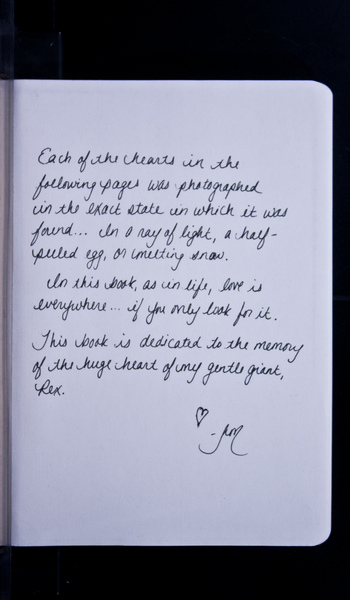 Each of the hearts in the
following pages was photographed
in the exact state in which it was
found... In a ray of light, a half-
peeled egg, or melting snow.
In this book, as in life, love is
everywhere... if you only look for it.
This book is dedicated to the memory
of the huge heart of my gentle giant,
Rex.